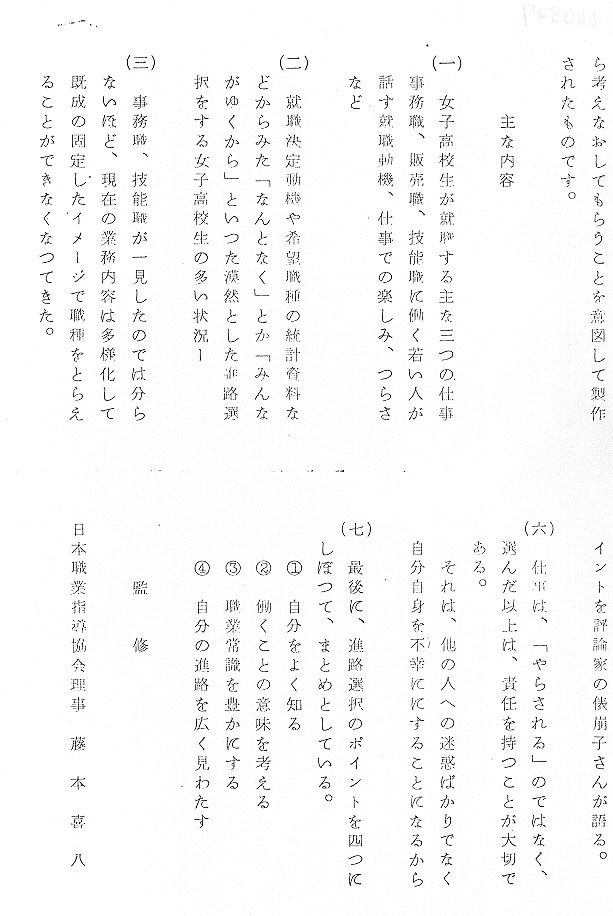 ら考えなおしてもらうことを意図して製作
されたものです。
主な内容
(一)
女子高校生が就職する主な三つの仕事
事務職、販売職、技能職に働く若い人が
話す就職動機、仕事での楽しみ、つらさ
など
(二)
就職決定動機や希望職種の統計資料な
どからみた「なんとなく」とか「みんな
がゆくから」といつた漠然とした進路選
択をする女子高校生の多い状況ー
(三)
事務職、技能職が一見したのでは分ら
ないほど、現在の業務内容は多様化して
既成の固定したイメージで職種をとらえ
ることができなくなつてきた。
イントを評論家の俵崩子さんが語る。
(六)
仕事は、「やらされる」のではなく、
選んだ以上は、責任を持つことが大切で
ある。
それは、他の人への迷惑ばかりでなく
自分自身を不幸ににすることになるから
(七)
最後に、進路選択のポイントを四つに
しぼつて、まとめとしている。
① 自分をよく知る
② 働くことの意味を考える
③ 職業常識を豊かにする
④ 自分の進路を広く見わたす
監修
日本職業指導協会理事 藤本喜八